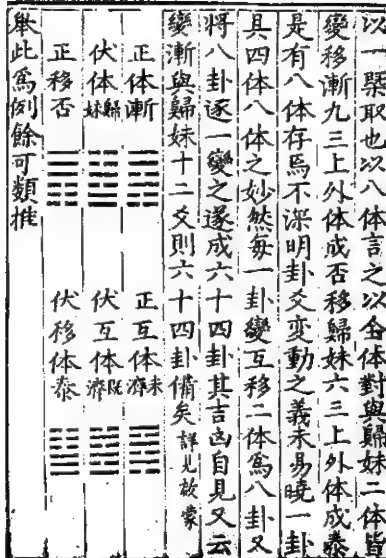 以一槩取也以八体言之以全体對與歸妹二体皆
變移漸九三上外体成否移歸妹六三上外体成泰
是有八体存焉不深明卦爻變動之義未易曉一卦
具四体八体之妙然每一卦變互移二体為八卦又
將八卦逐一變之遂成六十四卦其吉凶自見又云
變漸與歸妹十二爻則六十四卦備矣詳見啟蒙
正体漸 正互体未濟
伏体歸妹 伏互体既濟
正移否 伏移体泰
舉此為例餘可類推